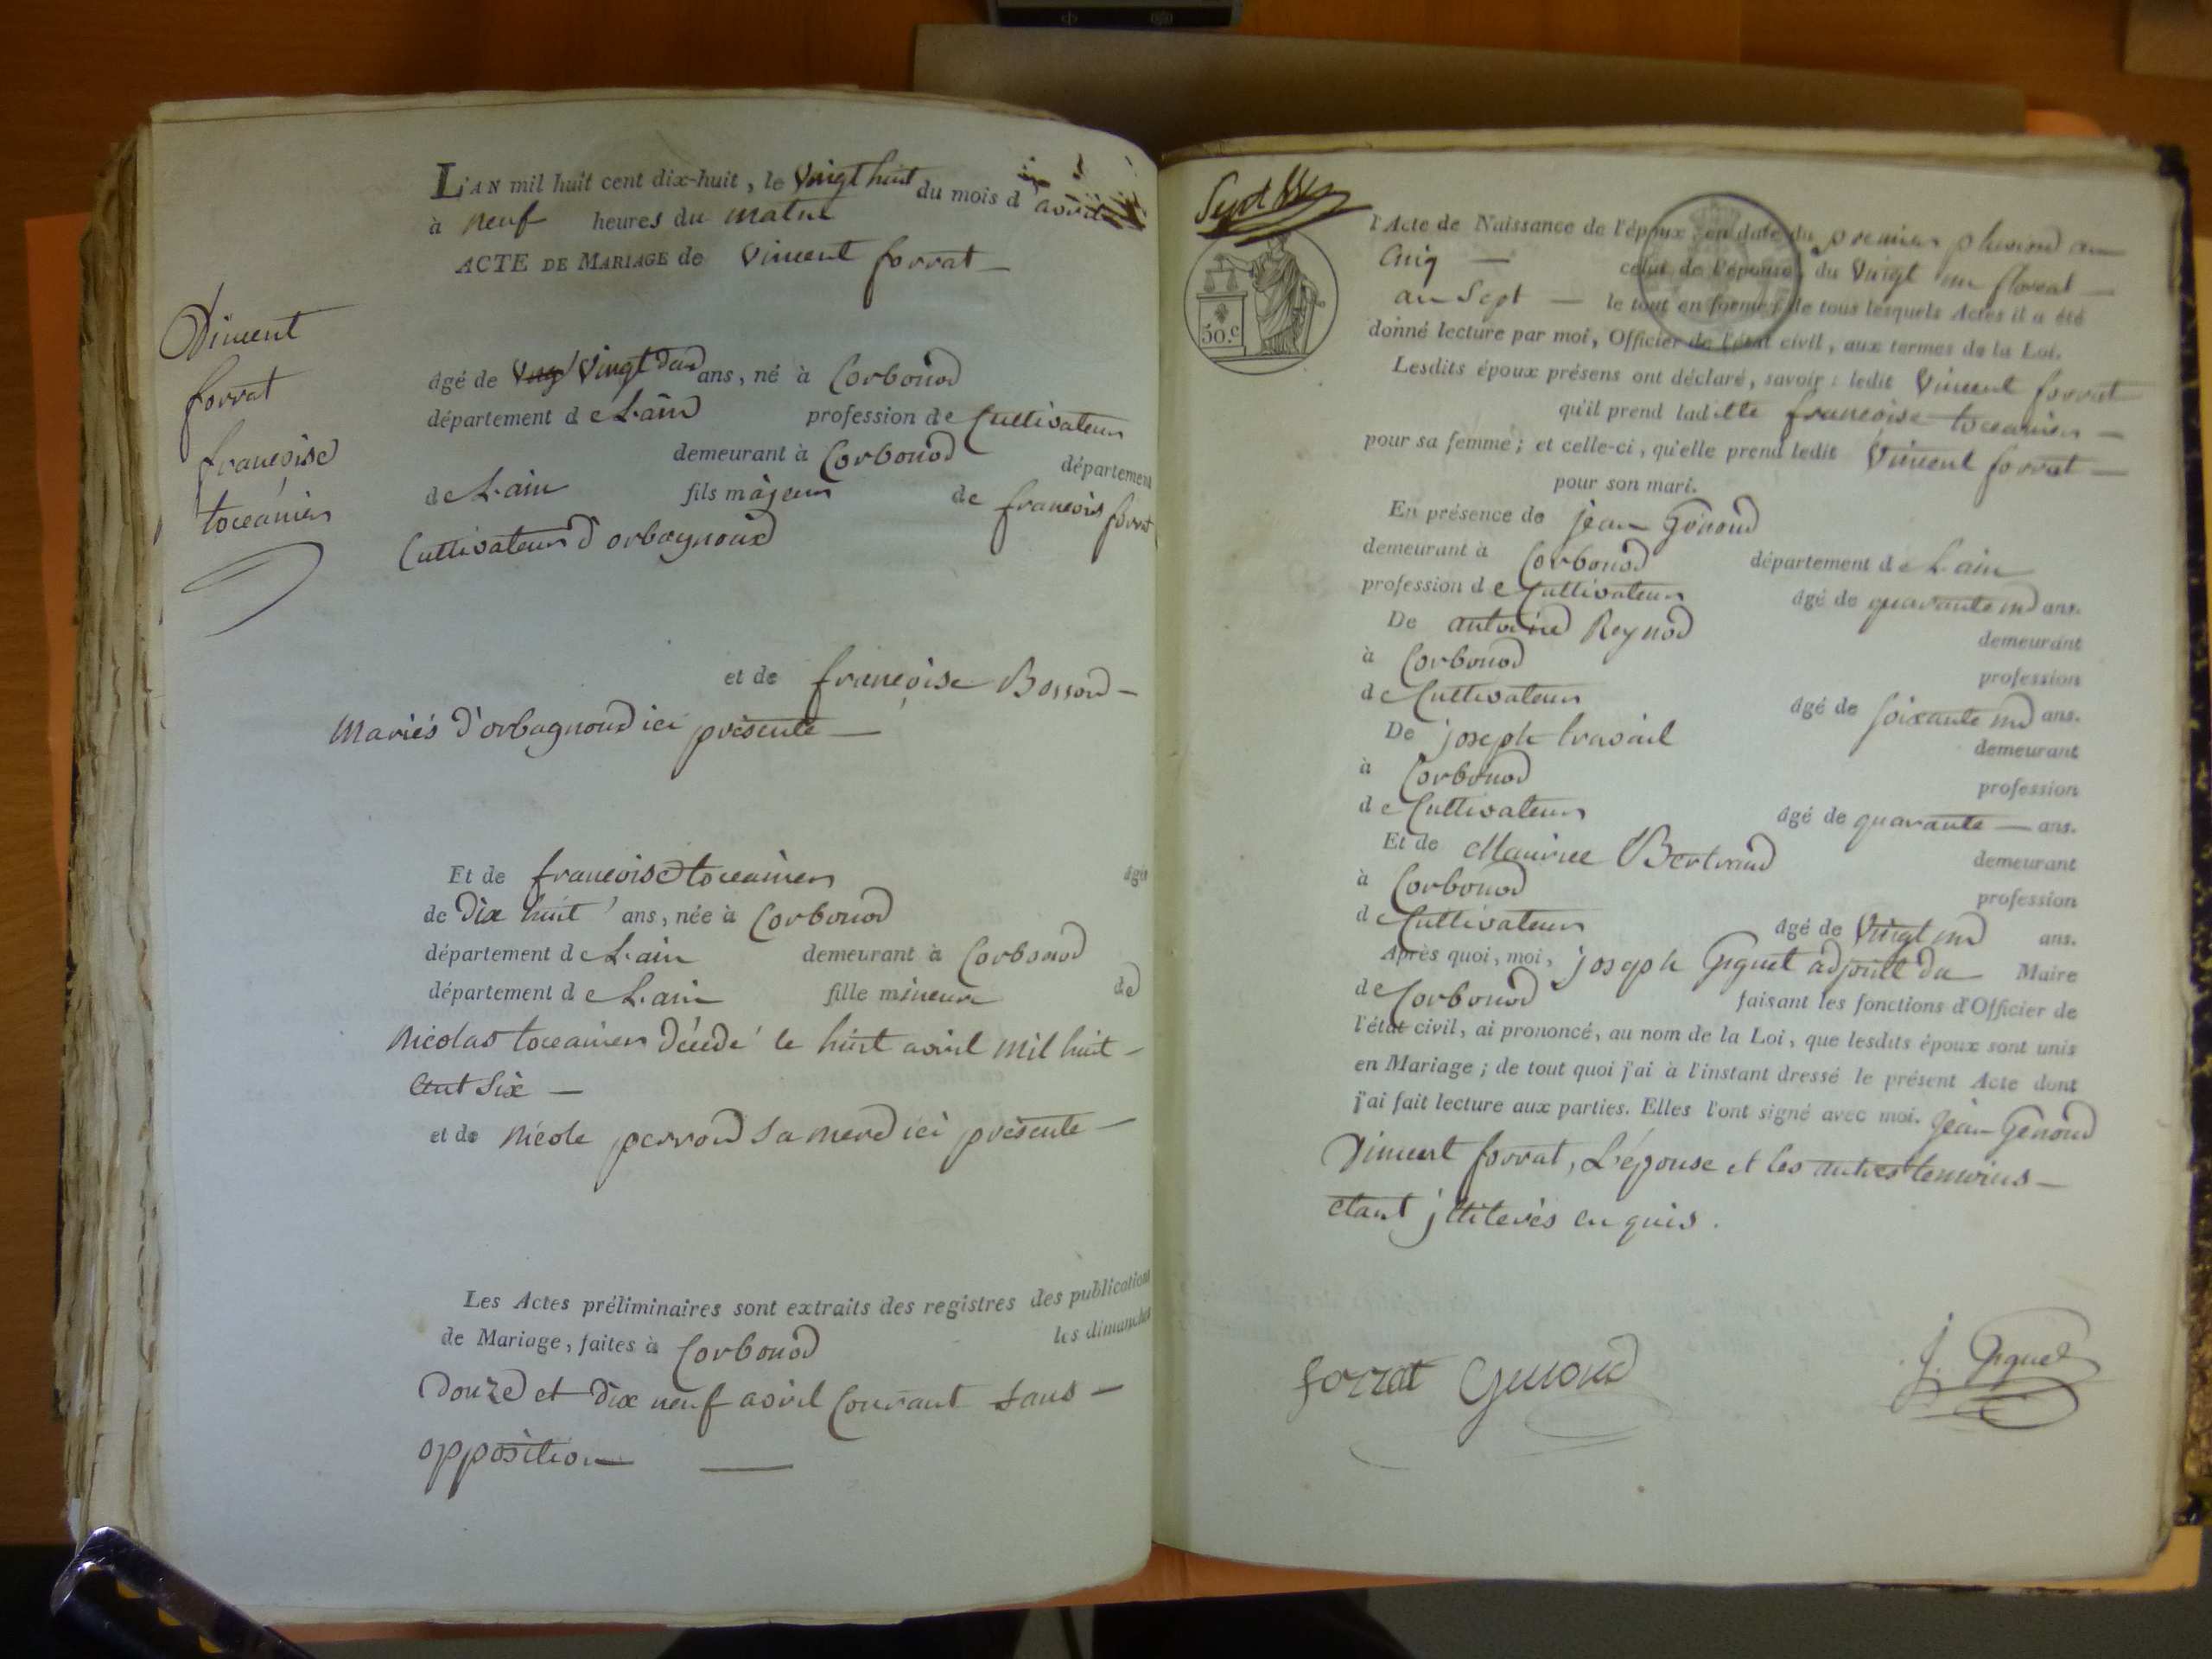 L'AN mil huit cent dix-huit, le vingt huit du mois d'avril
à neuf heures du matin
ACTE DE MARIAGE de Vincent forrat
Vincent
forrat
françoise
toccanier
âgé de vingt deux ans, né à Corbonod
département de L'ain profession de Cultivateur
demeurant à Corbonod département
de L'ain fils majeur de françois forrat
Cultivateur d'orbagnoux
et de françoise Bossond
mariés d'orbagnoud ici présente
Et de francoise toccanier âgée
de dix huit ans, née à Corbonod
département de L'ain demeurant à Corbonod
département de L'ain fille mineure de
Nicolas toccanier décédé le huit avril mil huit
cent six
et de Nicole perrond sa mere ici présente
Les Actes préliminaires sont extraits des registres des publications
de Mariage, faites à Corbonod les dimanches
Douze et dix neuf avril Courant sans
opposition
50.c
l'Acte de Naissance de l'époux, en date du premier pluviose an
Cinq celui de l'épouse, du vingt un floreal
an sept le tout en forme; de tous lesquels Actes il a été
donné lecture par moi, Officier de l'état civil, aux termes de la Loi.
Lesdits époux présens ont déclaré, savoir: ledit Vincent forrat
qu'il prend laditte françoise toccanier
pour sa femme; et celle-ci, qu'elle prend ledit Vincent forrat
pour son mari.
En présence de jean Genoud
demeurant à Corbonod département de L'ain
profession de Cultivateur âgé de quarante un ans.
De antoine Reynod demeurant
à Corbonod profession
de Cultivateur âgé de soixante un ans.
De joseph travail demeurant
à Corbonod profession
de Cultivateur âgé de quarante ans.
Et de Maurice Bertrand demeurant
à Corbonod profession
de Cultivateur âgé de vingt un ans.
Après quoi, moi, joseph Giguet adjoint du Maire
de Corbonod faisant les fonctions d'Officier de
l'état civil, ai prononcé, au nom de la Loi, que lesdits époux sont unis
en Mariage; de tout quoi j'ai à l'instant dressé le présent Acte dont
j'ai fait lecture aux parties. Elles l'ont signé avec moi. jean Genoud
Vincent forrat, L'épouse et les autres temoins
etant jlliterés enquis.
forrat Genoud J. Giguet